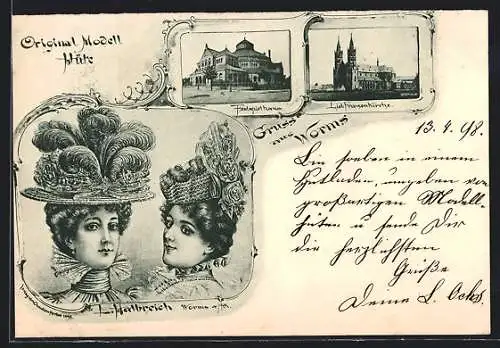 Original Modell
Hüte
Festspielhaus
Liebfrauenkirche.
Gruss
aus Worms
13. 4. 98.
Bin soeben in einem
Hutladen, umgeben von
großartigen Modell-
hüten u. sende Dir
die herzlichsten
Grüße
Deine L. Ochs.
Worms a/Rh.